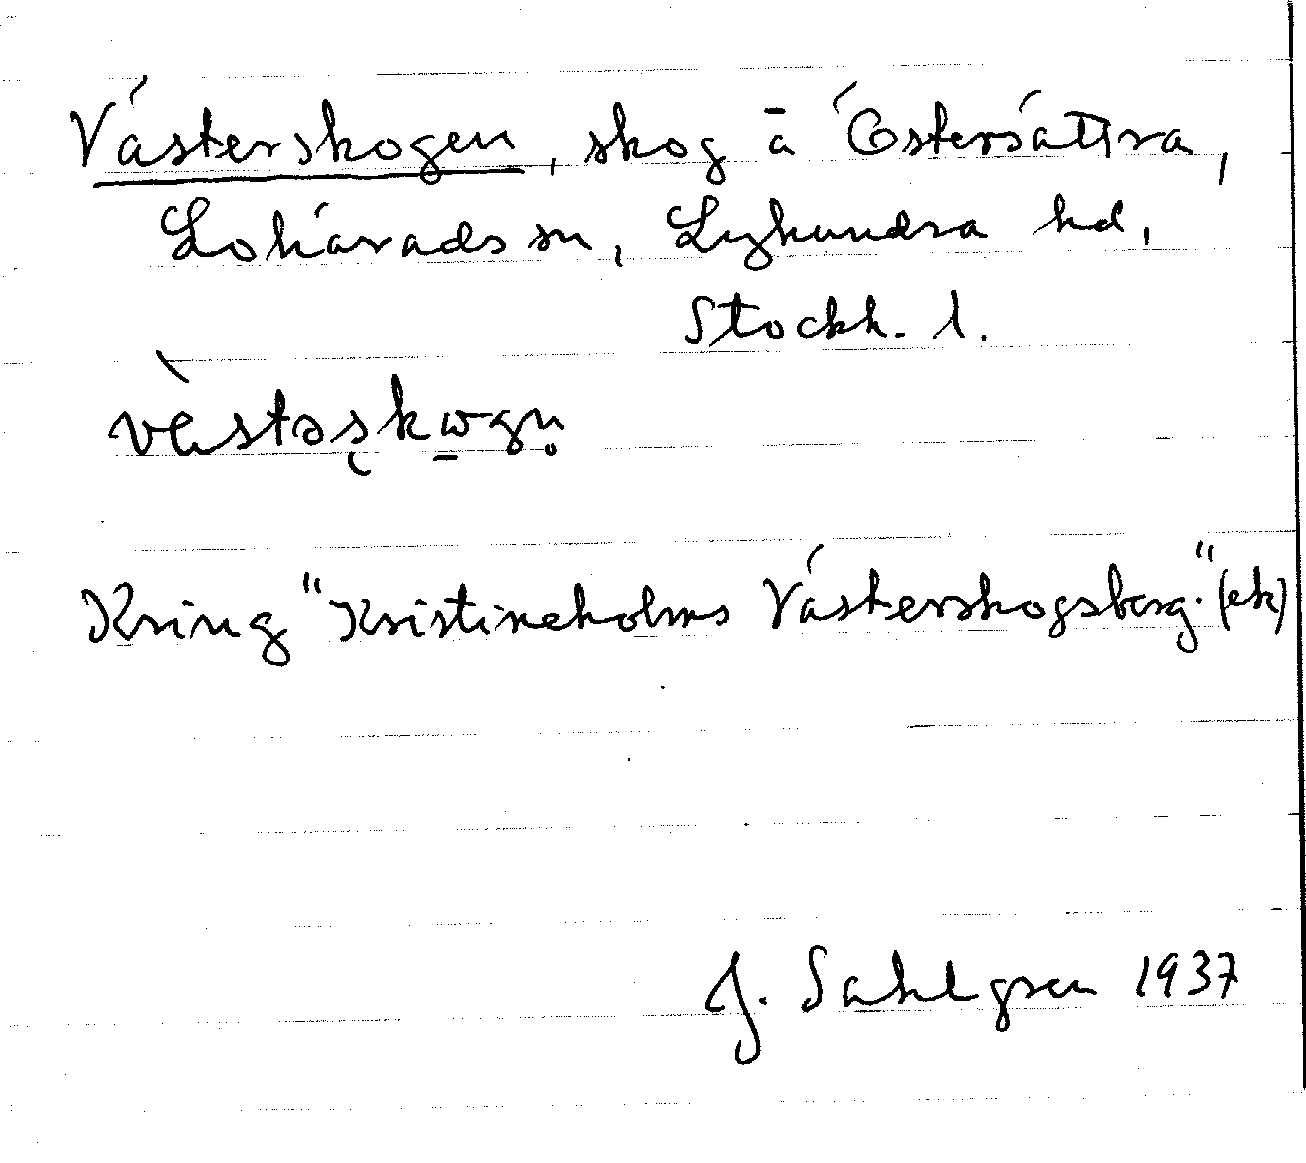 Västerskogen, skog å Östersättra,
Lohärads sn, Lyhundra hd,
Stockh. l.
vὲstəşkωgn̥
Kring "Kristineholms Västerskogsberg." (ek)
J. Sahlgren 1937